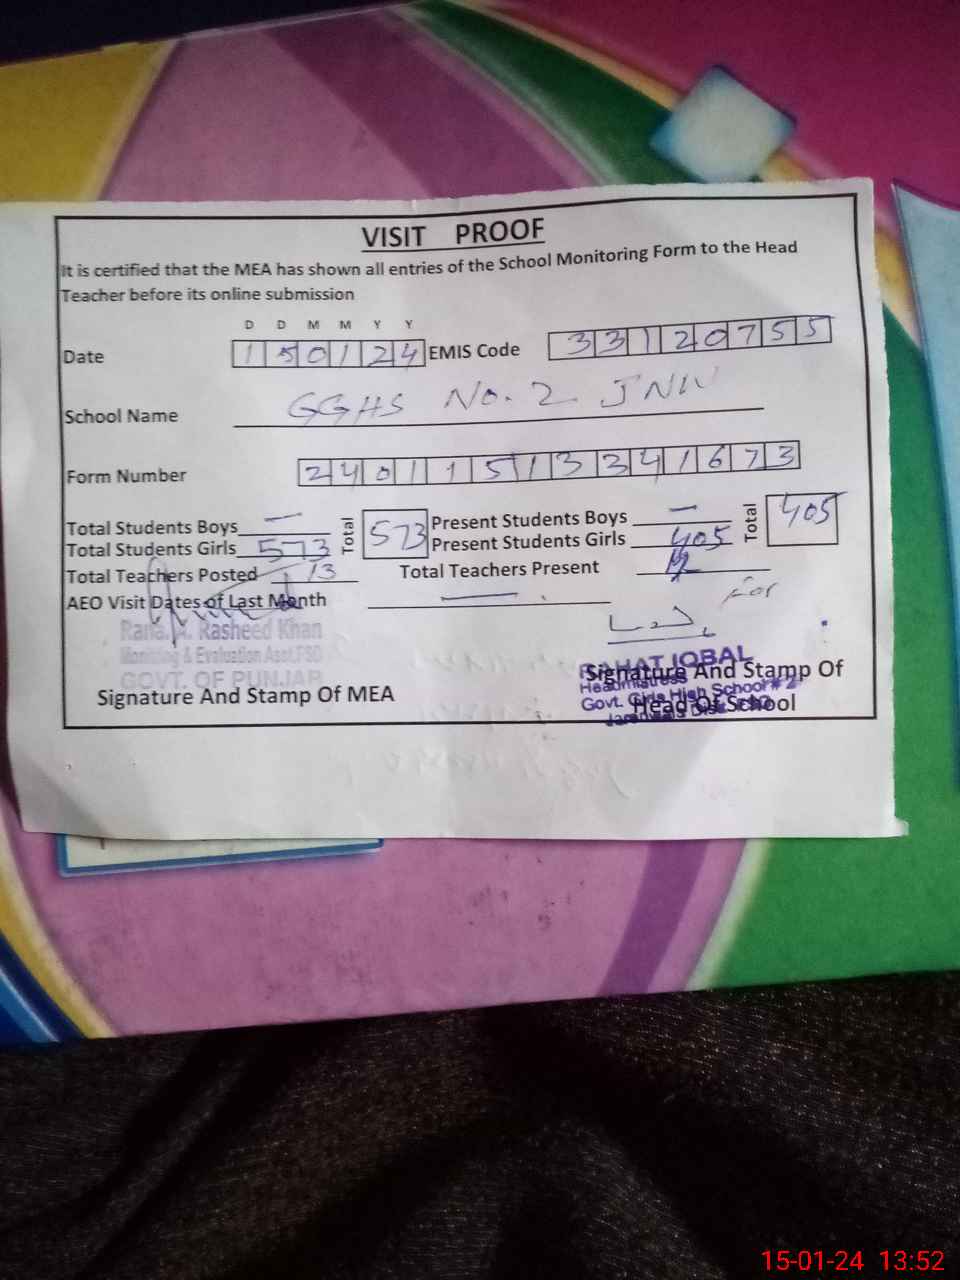 VISIT PROOF
It is certified that the MEA has shown all entries of the School Monitoring Form to the Head
Teacher before its online submission
D D M M Y Y
Date 150124 EMIS Code 33120755
School Name GGHS No. 2 JNW
Form Number 24011513341673
Total Students Boys — Total 573 Present Students Boys — Total 405
Total Students Girls 573 Present Students Girls 405
Total Teachers Posted 13 Total Teachers Present 12
AEO Visit Dates of Last Month —
For
Rana. A. Rasheed Khan
Monitring & Evaluation Asst.FSD
GOVT. OF PUNJAB
Signature And Stamp Of MEA
RAHAT IQBAL
Headmistress
Govt. Girls High School # 2
Signature And Stamp Of
Head Of School
15-01-24 13:52